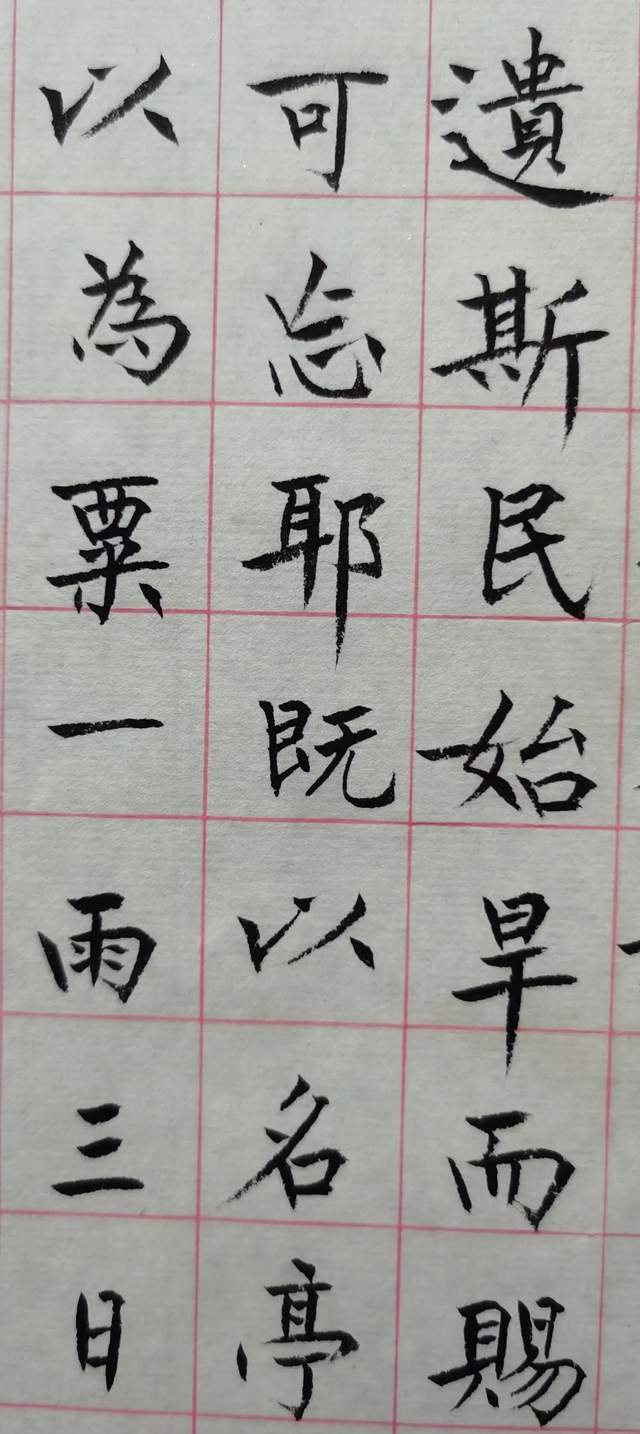 遺斯民始旱而賜
可忘耶既以名亭
以為粟一雨三日